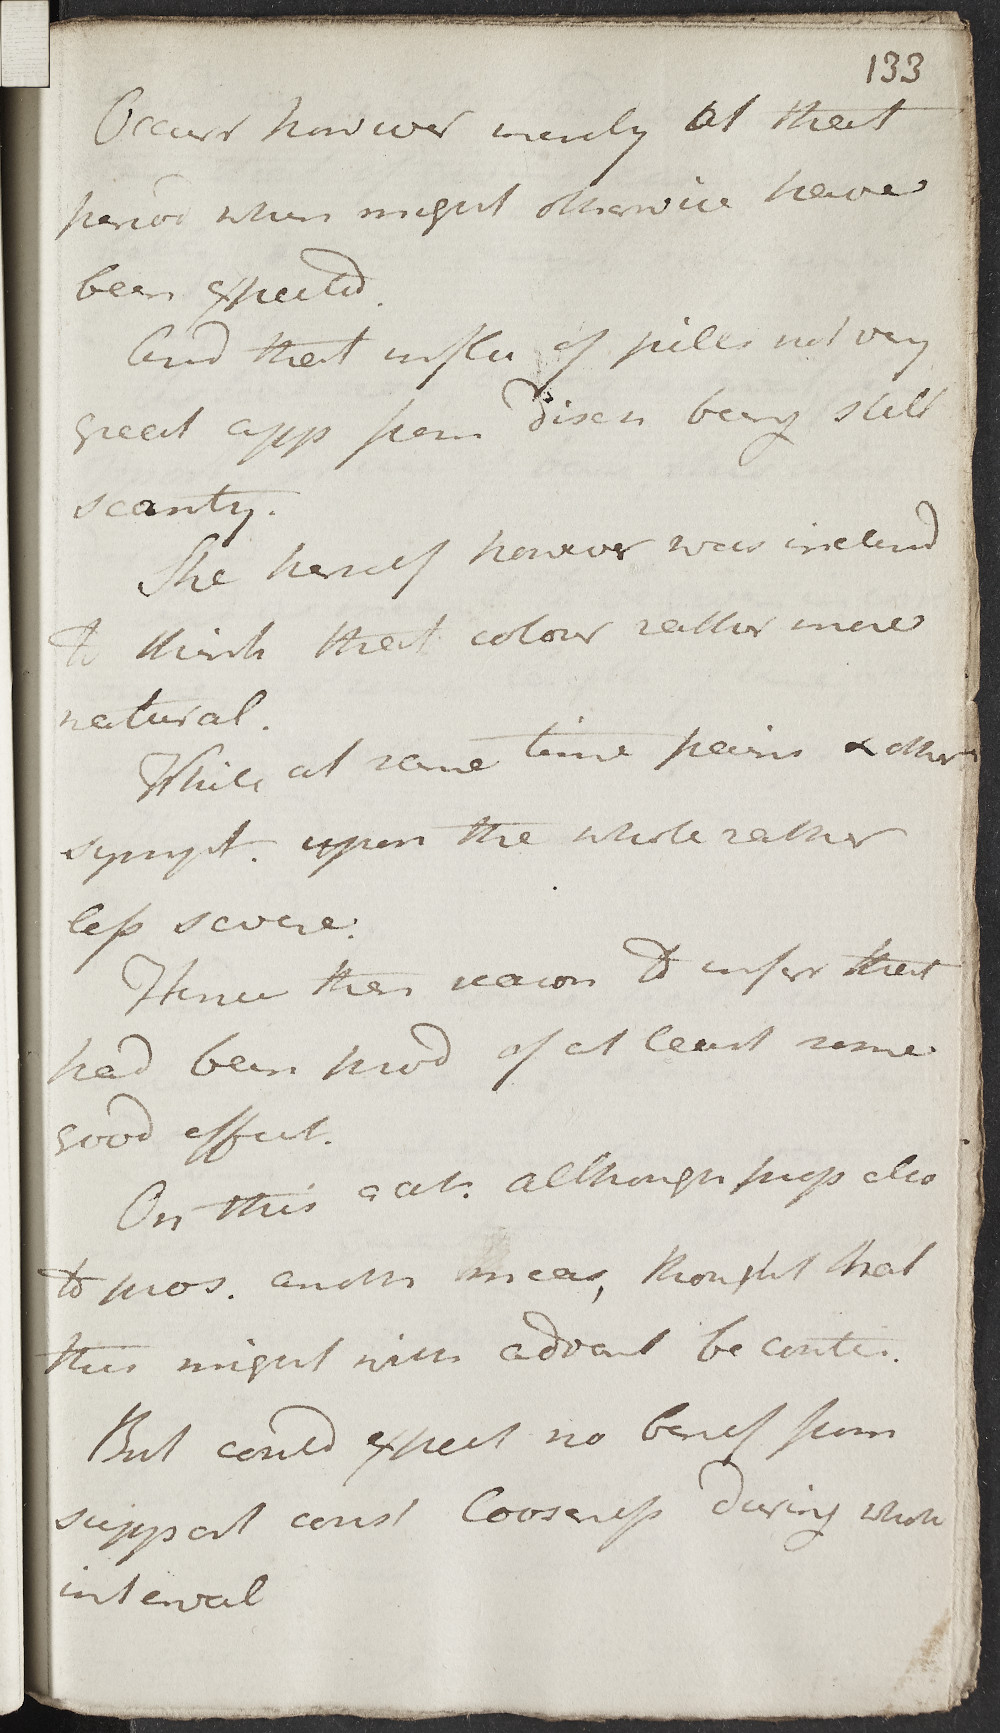 133
Occurr however merely at that
period when might otherwise have
been expected.
And that influ of pills not very
great app from disch being still
scanty.
She herself however was inclind
to think that colour rather more
natural.
While at same time pains & other
sympt. upon the whole rather
less severe.
Hence then reason to infer that
had been prod of at least some
good effect.
On this acct. although prop also
to pros. anoth meas, thought that
this might with advant be contin.
But could expect no benef from
support const Looseness during whole
interval